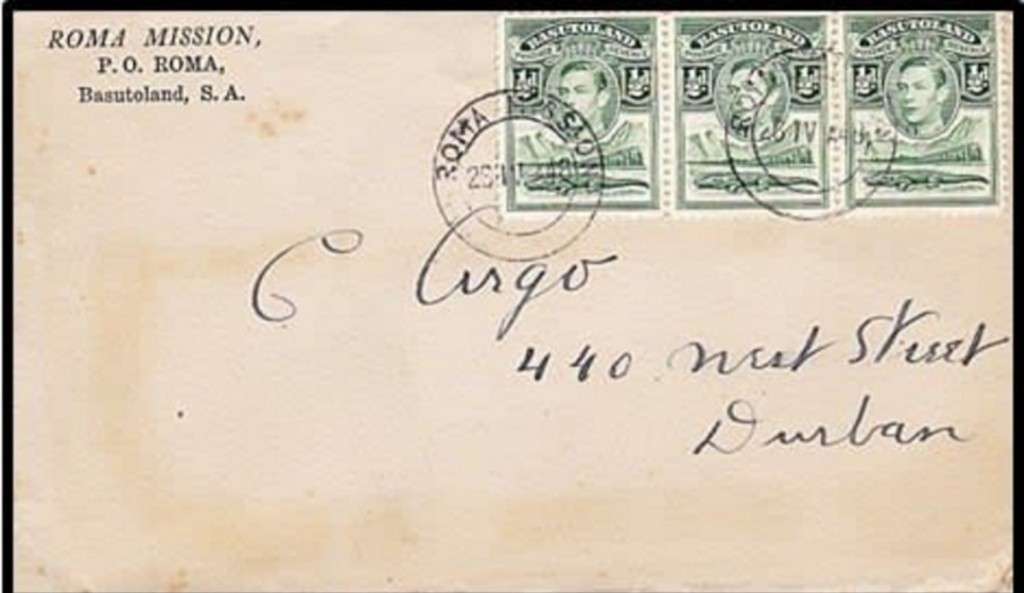 ROMA MISSION,
P. O. ROMA,
Basutoland, S. A.
BASUTOLAND
BASUTOLAND
BASUTOLAND
ROMA
C Argo
440 West Street
Durban